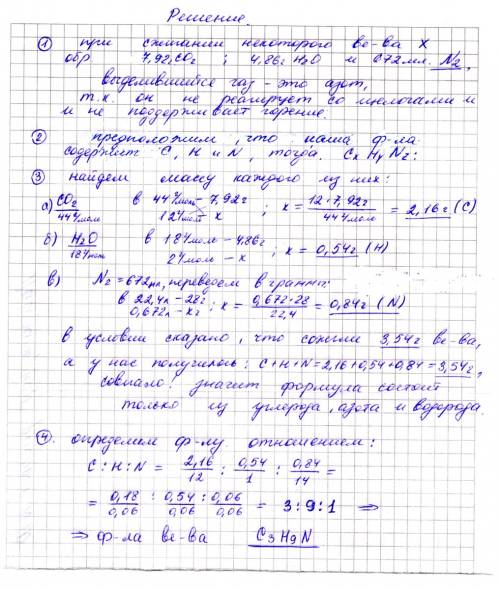 Решение
① при сжигании некоторого ве-ва X
обр 7,92г CO₂ ; 4,86г H₂O и 672мл. N₂,
выделившийся газ - это азот,
т.к. он не реагирует со щелочами и
и не поддерживает горение.
② предположим, что наша ф-ла
содержит C, H и N, тогда. CxHyNz:
③ найдем массу каждого из них:
а) CO₂ / 44г/моль в 44г/моль - 7,92г / 12г/моль - x ; x = 12·7,92г / 44г/моль = 2,16г (C)
б) H₂O / 18г/моль в 18г/моль - 4,86г / 2г/моль - x ; x = 0,54г (H)
в) N₂ = 672мл, переведем в граммы:
в 22,4л - 28г / 0,672л - xг ; x = 0,672·28 / 22,4 = 0,84г (N)
в условии сказано, что сожгли 3,54г ве-ва,
а у нас получилось: C+H+N = 2,16+0,54+0,84 = 3,54г,
совпало! значит формула состоит
только из углерода, азота и водорода.
④. определим ф-лу отношением:
C : H : N = 2,16/12 : 0,54/1 : 0,84/14 =
= 0,18/0,06 : 0,54/0,06 : 0,06/0,06 = 3:9:1 ⇒
⇒ ф-ла ве-ва C₃H₉N